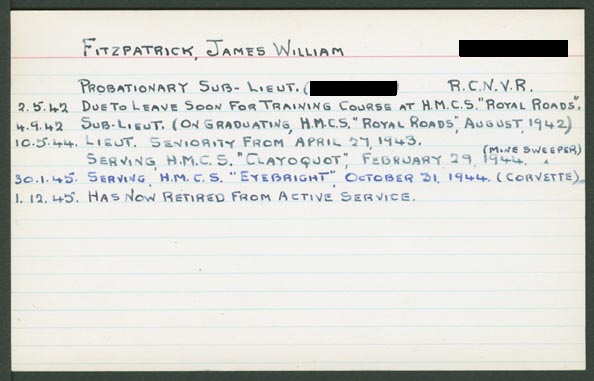 FITZPATRICK, JAMES WILLIAM
PROBATIONARY SUB-LIEUT. ( ) R.C.N.V.R.
2.5.42 DUE TO LEAVE SOON FOR TRAINING COURSE AT H.M.C.S. "ROYAL ROADS".
4.9.42 SUB-LIEUT. (ON GRADUATING, H.M.C.S. "ROYAL ROADS", AUGUST, 1942)
10.5.44. LIEUT. SENIORITY FROM APRIL 27, 1943.
SERVING, H.M.C.S. "CLAYOQUOT", FEBRUARY 29, 1944. (MINE SWEEPER)
30.1.45. SERVING, H.M.C.S. "EYEBRIGHT", OCTOBER 31, 1944. (CORVETTE)
1.12.45. HAS NOW RETIRED FROM ACTIVE SERVICE.